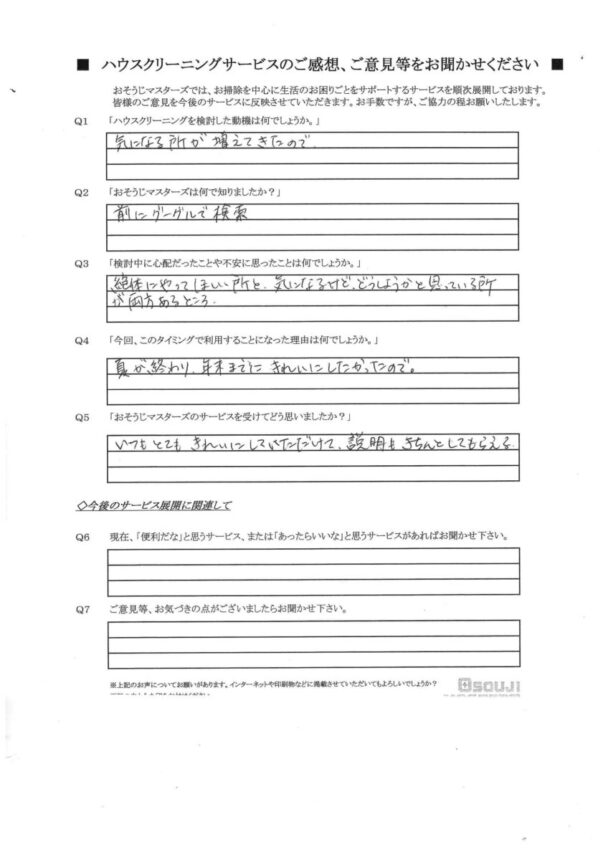 ■ ハウスクリーニングサービスのご感想、ご意見等をお聞かせください ■
おそうじマスターズでは、お掃除を中心に生活のお困りごとをサポートするサービスを順次展開しております。
皆様のご意見を今後のサービスに反映させていただきます。お手数ですが、ご協力の程お願いしたします。
Q1 「ハウスクリーニングを検討した動機は何でしょうか。」
気になる所が増えてきたので
Q2 「おそうじマスターズは何で知りましたか？」
前にグーグルで検索
Q3 「検討中に心配だったことや不安に思ったことは何でしょうか。」
絶体にやってほしい所と、気になるけど、どうしようかと思っている所
が両方あるところ。
Q4 「今回、このタイミングで利用することになった理由は何でしょうか。」
夏が終わり、年末までに きれいにしたかったので。
Q5 「おそうじマスターズのサービスを受けてどう思いましたか？」
いつもとても きれいにしていただけて、説明も きちんとしてもらえる。
◇今後のサービス展開に関連して
Q6 現在、「便利だな」と思うサービス、または「あったらいいな」と思うサービスがあればお聞かせ下さい。
Q7 ご意見等、お気づきの点がございましたらお聞かせ下さい。
※上記のお声についてお願いがあります。インターネットや印刷物などに掲載させていただいてもよろしいでしょうか？
SOUJI